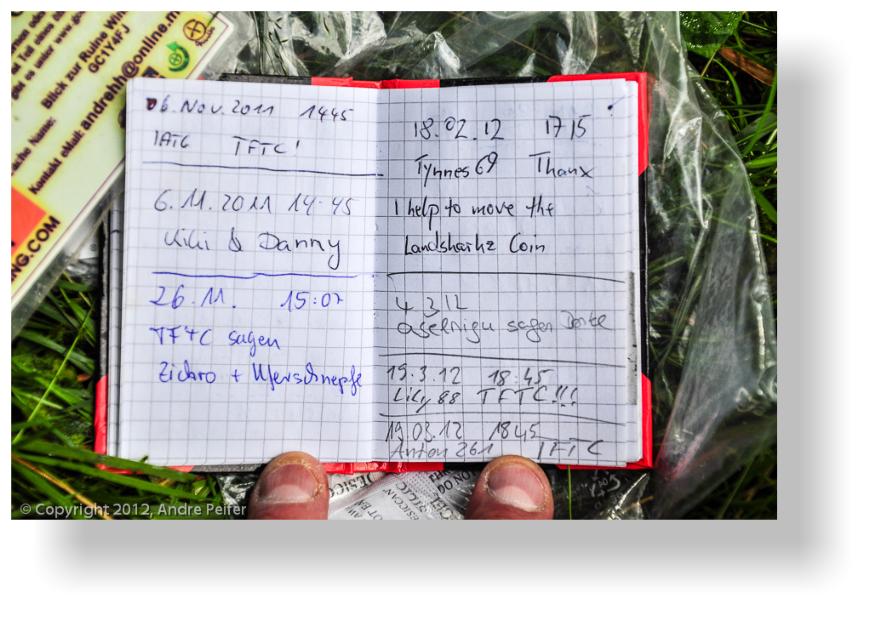 Blick zur Ruine Win
GC1Y4FJ
Kontakt eMail: andrehh@online.m
NG.COM
06. Nov. 2011 1445
TFTC!
6. 11. 2011 14:45
Kiki & Danny
26.11. 15:07
TFTC sagen
Zickro + Uferschnepfe
18.02.12 1715
Tynnes69 Thanx
I help to move the
Landsharkz Coin
4 3 12
sagen Danke
19.3.12 18:45
Lily 88 TFTC!!!
19.03.12 1845
Anton 261 TFTC
© Copyright 2012, Andre Peifer